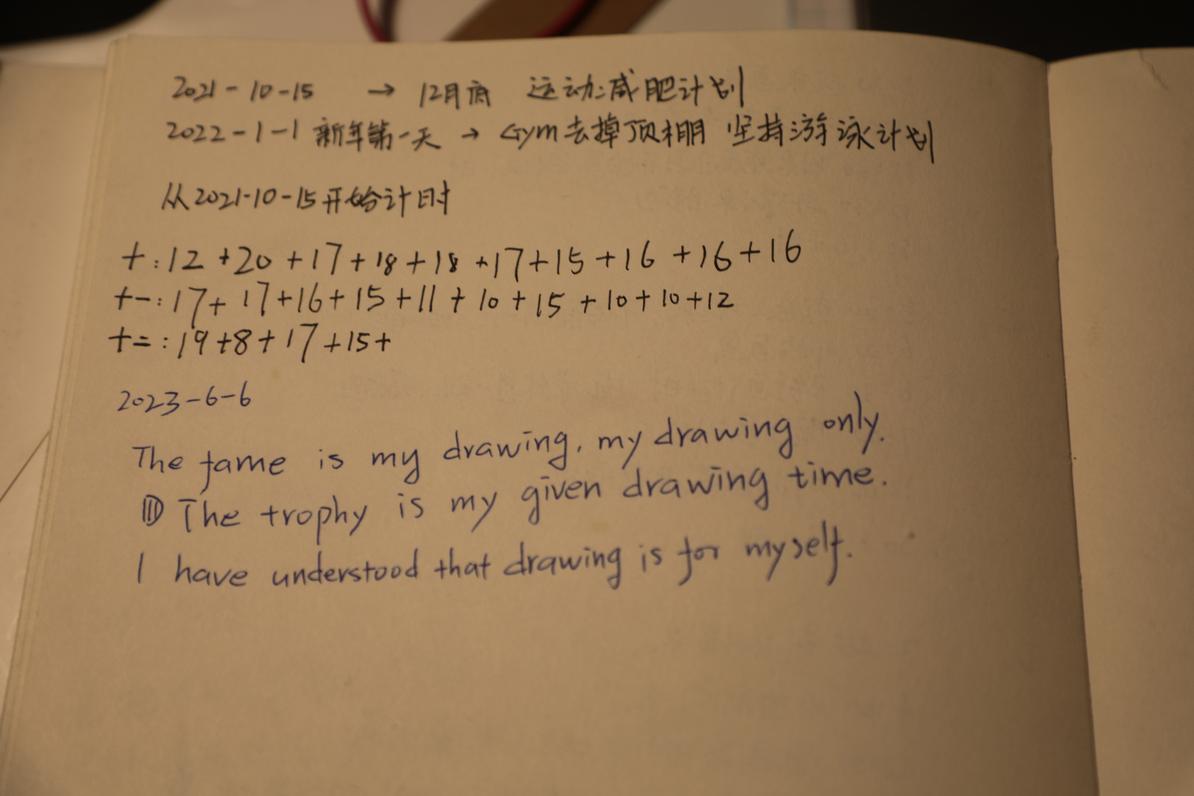 2021-10-15 → 12月底 运动减肥计划
2022-1-1 新年第一天 → Gym去掉顶棚 坚持游泳计划
从2021-10-15开始计时
十:12+20+17+18+18+17+15+16+16+16
十一:17+17+16+15+11+10+15+10+10+12
十二:19+8+17+15+
2023-6-6
The fame is my drawing, my drawing only.
The trophy is my given drawing time.
I have understood that drawing is for myself.